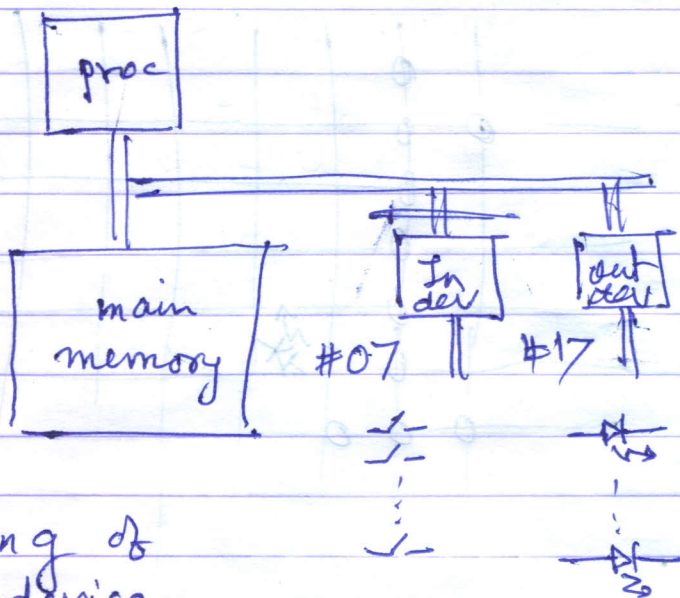 proc
main
memory
In
dev
out
dev
#07
#17
ng of
device